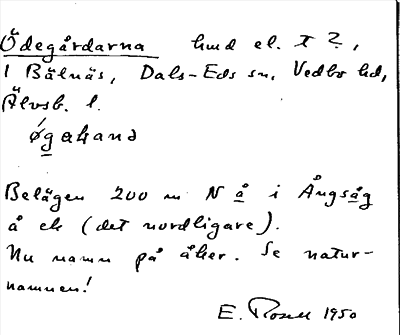 Ödegårdarna hmd el. T ?,
1 Bälnäs, Dals-Eds sn, Vedbo hd,
Älvsb. l.
øgakana
Belägen 200 m N å i Ängsåg
å ek (det nordligare).
Nu namn på åker. Se natur-
namnen!
E. Rosell 1950